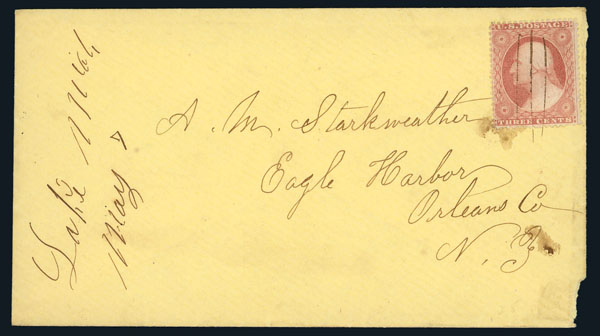 Lake Mich
May 7
U.S. POSTAGE
THREE CENTS
A. M. Starkweather
Eagle Harbor
Orleans Co
N. Y.